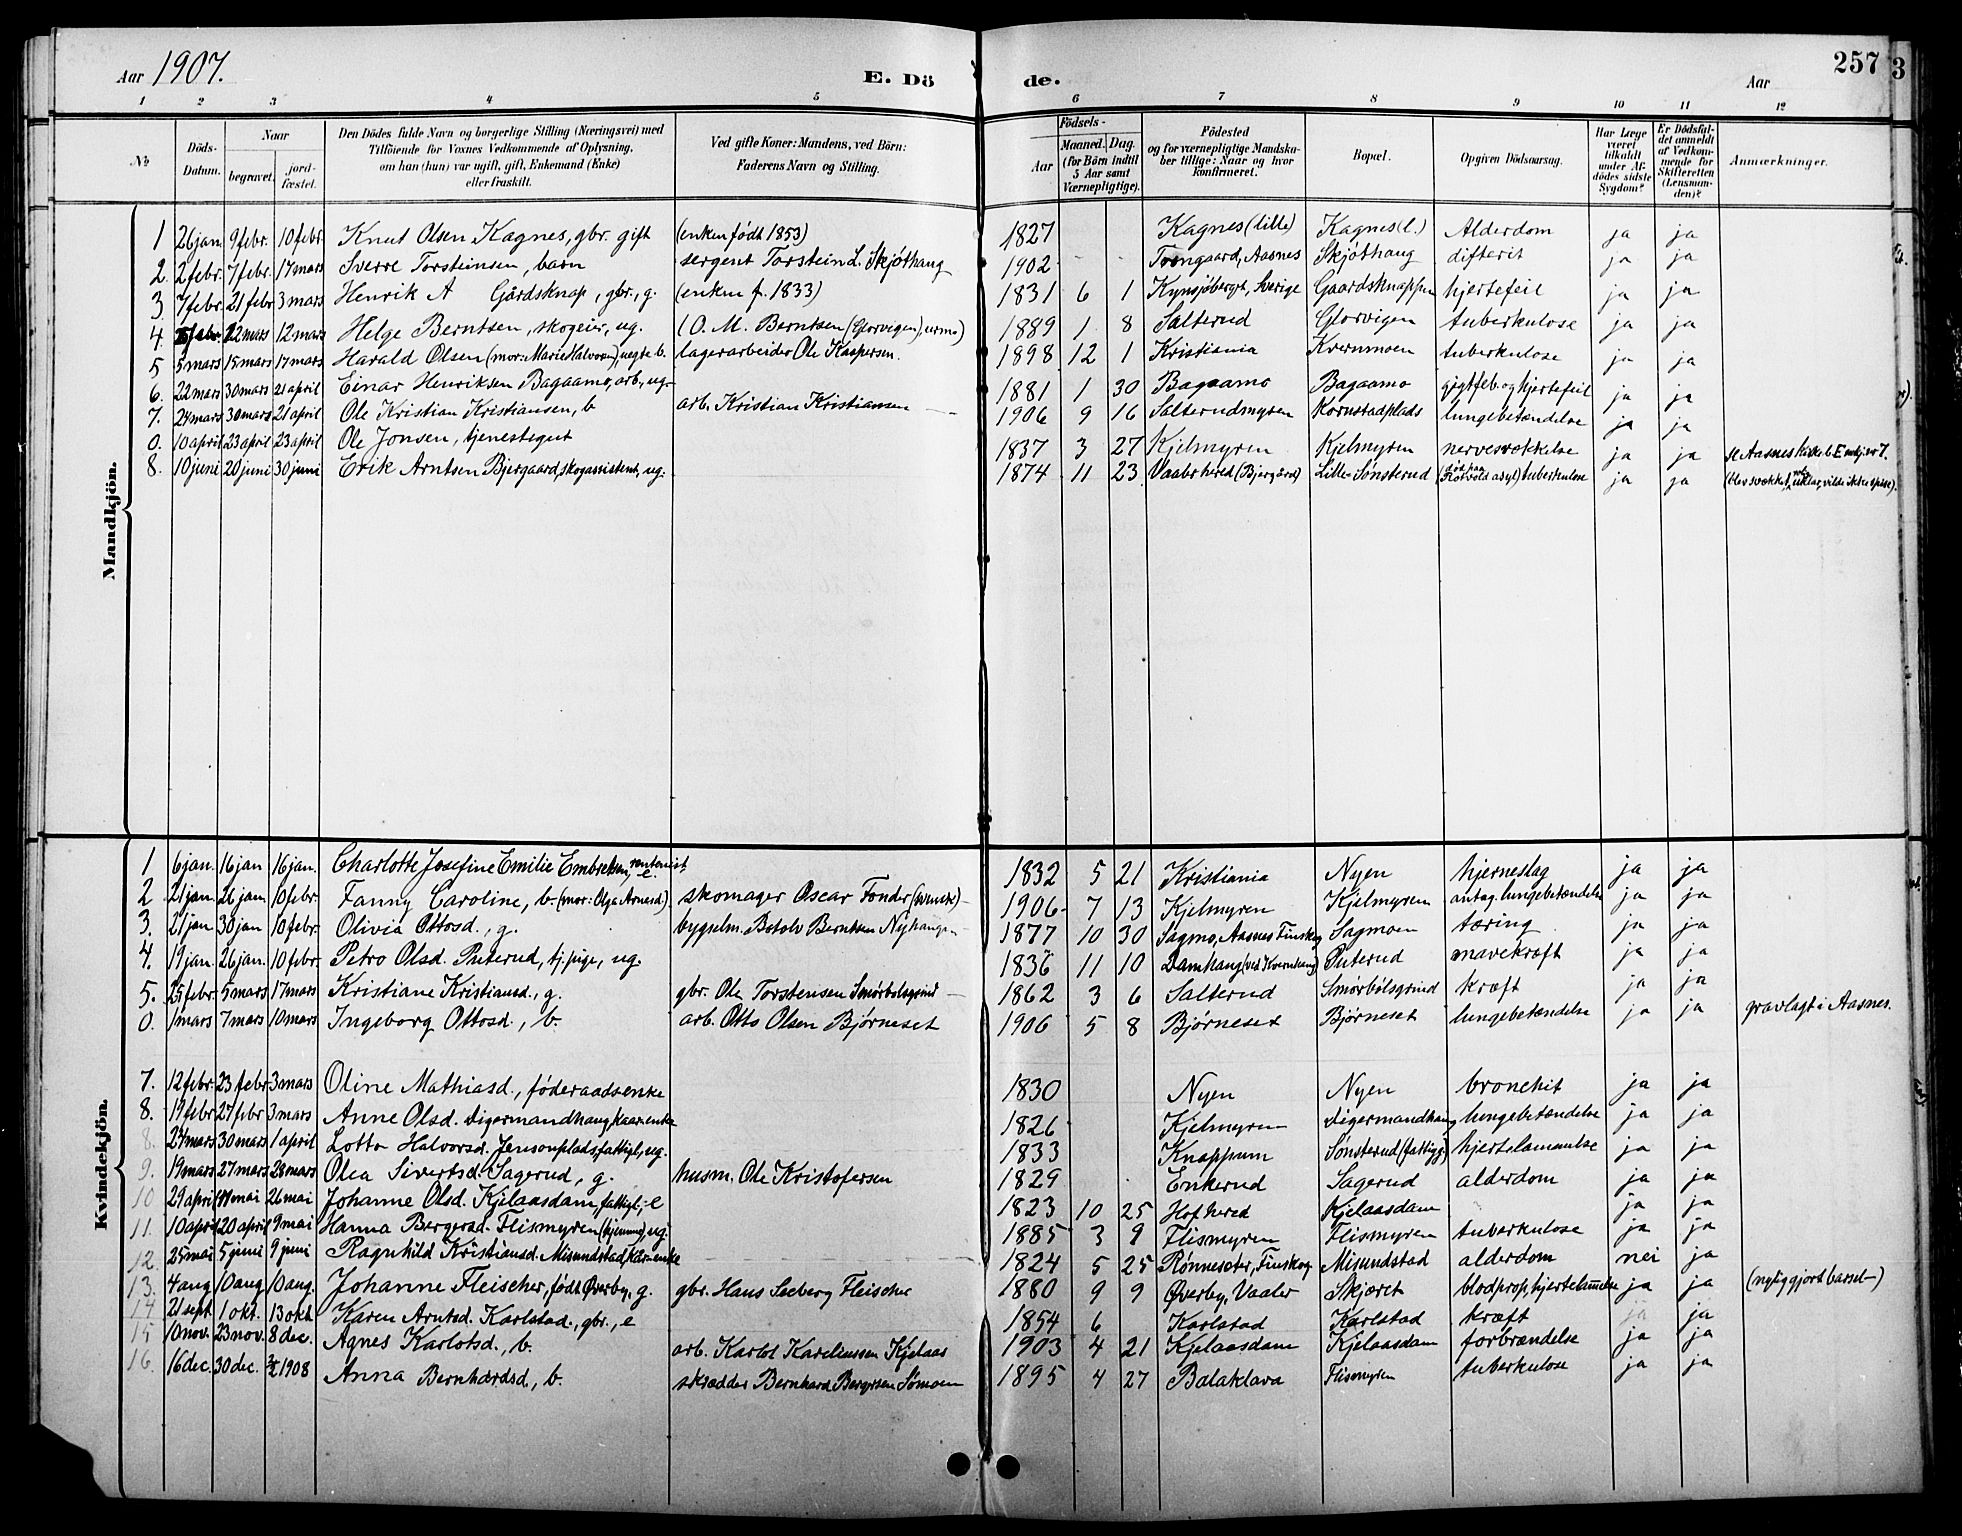 Aar 1907.
E. Dö de.
Aar
257
3
1 2 3 4 5 6 7 8 9 10 11 12
No
Döds-Datum.
Naar
begravet. jordfæstet.
Den Dödes fulde Navn og borgerlige Stilling (Næringsvei) med Tilföiende for Voxnes Vedkommende af Oplysning, om han (hun) var ugift, gift, Enkemand (Enke) eller fraskilt.
Ved gifte Koner: Mandens, ved Börn: Faderens Navn og Stilling.
Födsels-
Aar Maaned. Dag. (for Börn indtil 5 Aar samt Værnepligtige).
Födested og for værnepligtige Mandskaber tillige: Naar og hvor konfirmeret.
Bopæl.
Opgiven Dödsaarsag.
Har Læge været tilkaldt under Afdödes sidste Sygdom?
Er Dödsfaldet anmeldt af Vedkommende for Skifteretten (Lensmanden)?
Anmærkninger.
Mandkjön.
1 26 jan. 9 febr. 10 febr. Knut Olsen Kagnes, gbr. gift (enken født 1853) 1827 Kagnes (lille) Kagnes (l.) Alderdom ja ja
2. 2 febr. 7 febr. 17 mars Sverre Torsteinsen, barn sergent Torstein L. Skjøthaug 1902 - - Trongaard, Aasnes Skjøthaug difterit ja ja
3. 7 febr. 21 febr. 3 mars Henrik A Gårdsknap, gbr., g. (enken f. 1833) 1831 6 1 Kynsjøberget, Sverige Gaardsknappen hjertefeil ja ja
4. 12 mars 12 mars Helge Berntsen, skogeier, ug. (O. M. Berntsen (Glorvigen), urm.) 1889 1 8 Salterud Glorvigen tuberkulose ja ja
5 5 mars 15 mars 17 mars Harald Olsen (mor: Marie Halvorsen), uegte b. lagerarbeider Ole Kaspersen. 1898 12 1 Kristiania Kvernmoen tuberkulose ja ja
6. 22 mars 30 mars 21 april Einar Henriksen Bagaamo, arb., ug. 1881 1 30 Bagaamo Bagaamo gigtfeb. og hjertefeil ja ja
7. 24 mars 30 mars 21 april Ole Kristian Kristiansen, b arb. Kristian Kristiansen 1906 9 16 Salterudmyren Kornstadplads lungebetændelse ja ja
0. 10 april 23 april 23 april Ole Jonsen, tjenestegut 1837 3 27 Kjelmyren Kjelmyren nervesvækkelse ja ja se Aasnes kirkeb. E mkj. nr 7.
8. 10 juni 20 juni 30 juni Erik Arntsen Bjergaard, skogassistent, ug. 1874 11 23 Vaaler herred (Bjergård) Lille-Sønsterud (død paa Rotvold asyl) tuberkulose ja ja (blev svækket, vilde ikke spise).
Kvindekjön.
1 6 jan. 16 jan 16 jan. Charlotte Josefine Emilie Embretsen, rentenist e. 1832 5 21 Kristiania Nyen hjerneslag ja ja
2 21 jan. 26 jan. 10 febr. Fanny Caroline, b. (mor: Olga Arnesd.) skomager Oscar Fonder (svenske) 1906 7 13 Kjelmyren Kjelmyren antag. lungebetændelse ja ja
3. 21 jan 30 jan 10 febr. Olivia Ottosd., g. bygselm. Betolv Berntsen Nyhaugen 1877 10 30 Sagmo, Aasnes Finskog Sagmoen tæring ja ja
4. 19 jan. 26 jan. 10 febr. Petro Olsd. Puterud, tj. pige, ug. 1836 11 10 Damhaug (ved Kvernhaug) Puterud mavekræft ja ja
5. 25 febr. 5 mars 17 mars Kristiane Kristiansd., g. gbr. Ole Torstensen Smørbølsgrind 1862 3 6 Salterud Smørbølsgrind kræft ja ja
0. 1 mars 7 mars 10 mars Ingeborg Ottosd., b. arb. Otto Olsen Bjørneset 1906 5 8 Bjørneset Bjørneset lungebetændelse ja ja gravlagt i Aasnes.
7. 12 febr. 23 febr 3 mars Oline Mathiasd., føderaadsenke 1830 Nyen Nyen bronchit ja ja
8. 19 febr 27 febr 3 mars Anne Olsd. Digermandhaug, kaarenke 1826 Kjelmyren Digermandhaug lungebetændelse ja ja
8. 24 mars 30 mars 1 april Lotta Halvorsd. Jensonplads, fattigl., ug. 1833 Knappum Sønsterud (fattigg) hjertelammelse ja ja
9. 19 mars 27 mars 28 mars Olea Sivertsd. Sagerud, g. husm. Ole Kristofersen 1829 Enkerud Sagerud alderdom ja ja
10 29 april mai 26 mai Johanne Olsd. Kjelaasdam, fattigl., e 1823 10 25 Hof herred Kjelaasdam ja ja
11. 10 april 20 april 9 mai Hanna Bergersd. Flismyren (hjemme), ug. 1885 3 9 Flismyren Flismyren tuberkulose ja ja
12. 25 mai 5 juni 9 juni Ragnhild Kristiansd. Misundstad, kårenke 1824 5 25 Rønnesæter, Finskog Misundstad alderdom nei ja
13. 4 aug 10 aug 10 aug. Johanne Fleischer, født Øverby, g. gbr. Hans Seeberg Fleischer 1880 9 9 Øverby, Vaaler Skjæret blodprop, hjertelammelse ja ja (nylig gjort barsel)
14 21 sept. 1 okt. 13 okt. Karen Arntsd. Karlstad, gbr., e 1854 6 Karlstad Karlstad kræft ja ja
15 10 nov. 23 nov. 8 dec. Agnes Karlotsd., b. arb. Karlot Kareliussen Kjelaas 1903 4 21 Kjelaasdam Kjelaasdam forbrændelse ja ja
16. 16 dec. 30 dec. 1908 Anna Bernhardsd., b. skrædder Bernhard Bergersen Sømoen 1895 4 27 Balaklava Flismyren tuberkulose ja ja